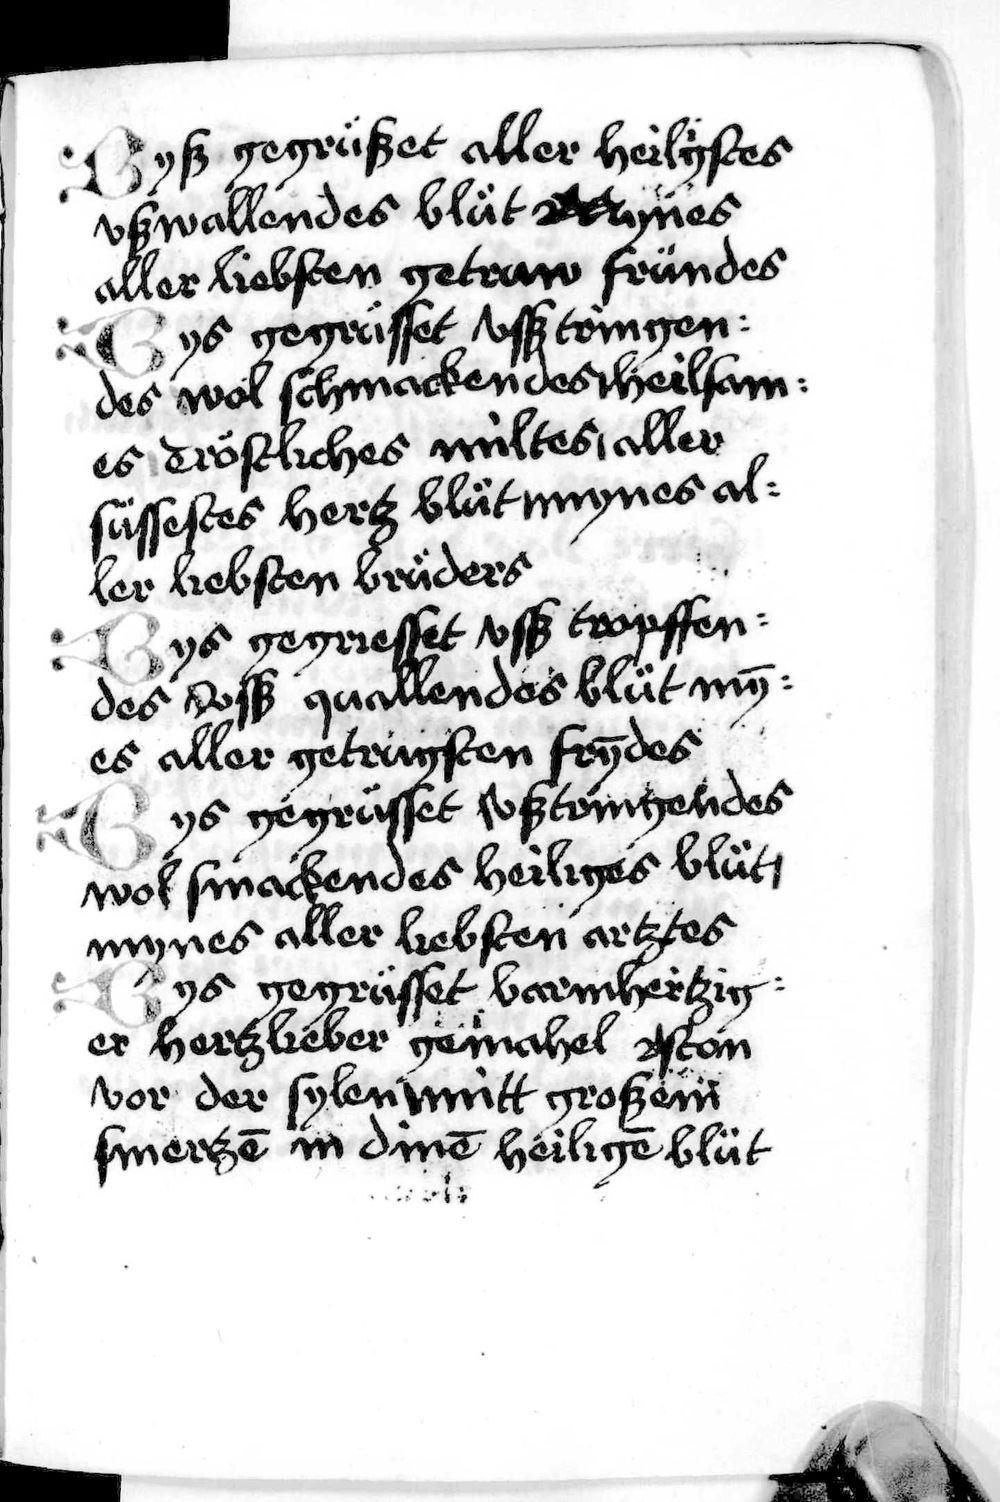 Byß gegrüßet aller heilgstes
vßwallendes blüt mynes
aller liebsten getruw fründes
Bys gegrüsset vsß tringen:
des wol schmackendes heilsam:
es tröstliches miltes aller
süssestes hertz blüt mynes al:
ler liebsten brüders
Bys gegriesset vsß tropffen:
des vsß quallendes blüt mȳ:
es aller getrugsten frȳdes
Bys gegrüsset vßtringendes
wol smackendes heiliges blüt
mynes aller liebsten artztes
Bys gegrüsset barmhertzig:
er hertzlieber gemahel
vor der sylen mitt großem
smertzē in dinē heiligē blüt